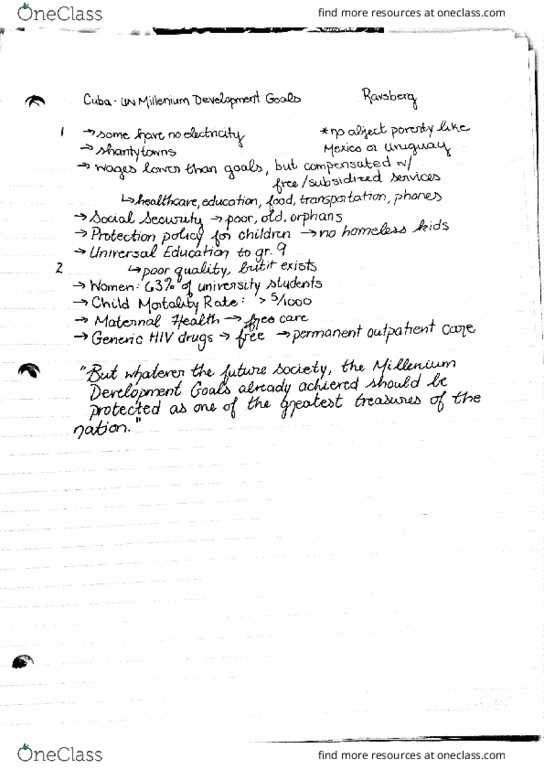 OneClass
find more resources at oneclass.com
Cuba - UN Millenium Development Goals Ravsberg
1 → some have no electricity *no abject poverty like
→ shantytowns Mexico or Uruguay
→ wages lower than goals, but compensated w/
free/subsidized services
↳ healthcare, education, food, transportation, phones
→ Social Security → poor, old, orphans
→ Protection policy for children → no homeless kids
→ Universal Education to gr. 9
2 ↳ poor quality, but it exists
→ Women: 63% of university students
→ Child Mortality Rate: > 5/1000
→ Maternal Health → free care
→ Generic HIV drugs → free → permanent outpatient care
"But whatever the future society, the Millenium
Development Goals already achieved should be
protected as one of the greatest treasures of the
nation."
OneClass
find more resources at oneclass.com